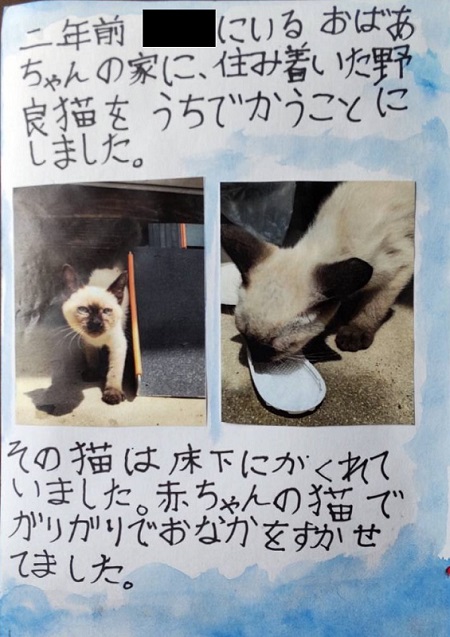 二年前 にいる おばあ
ちゃんの家に、住み着いた野
良猫を うちでかうことに
しました。
その猫は床下にかくれて
いました。赤ちゃんの猫で
がりがりでおなかをすかせ
てました。